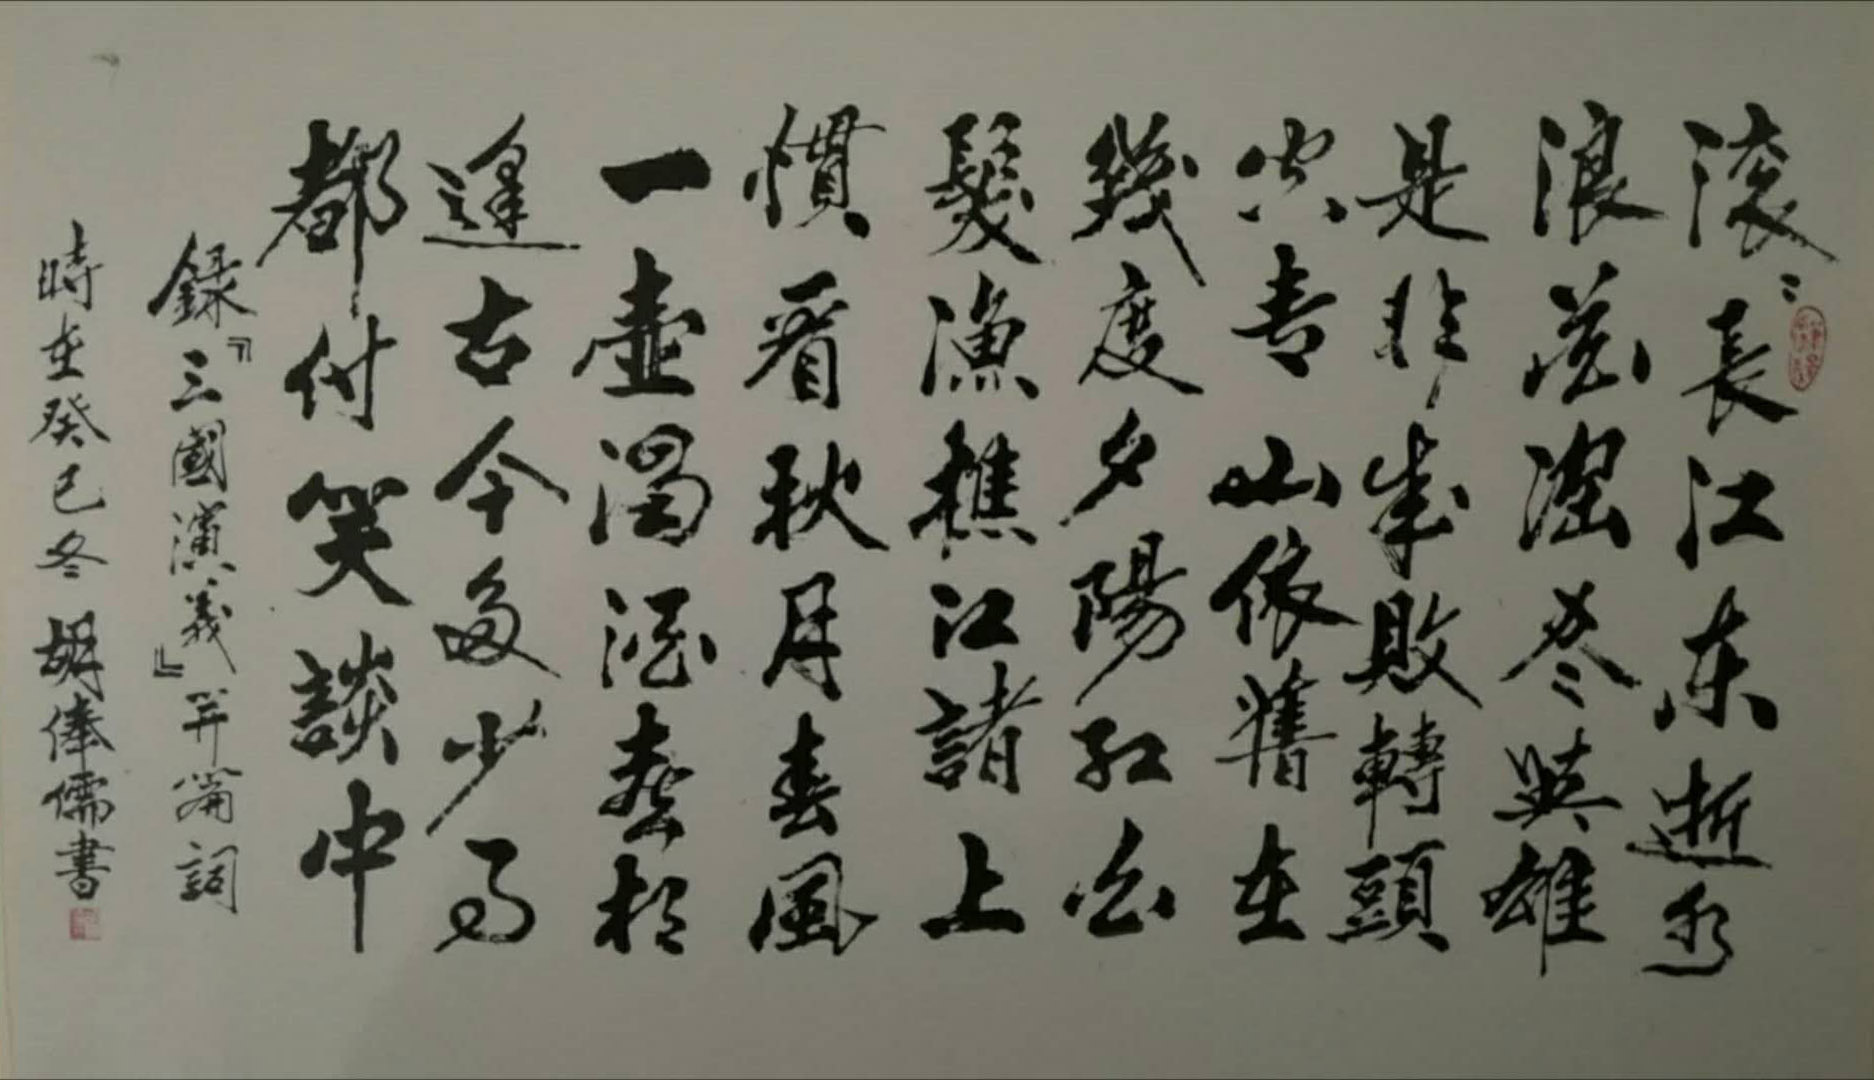 滚〻長江东逝水
浪花淘尽英雄
是非成敗轉頭
空青山依舊在
幾度夕陽红白
髮漁樵江諸上
慣看秋月春風
一壺濁酒喜相
逢古今多少事
都付笑談中
錄『三國演義』开篇詞
時在癸巳冬 胡俸儒書